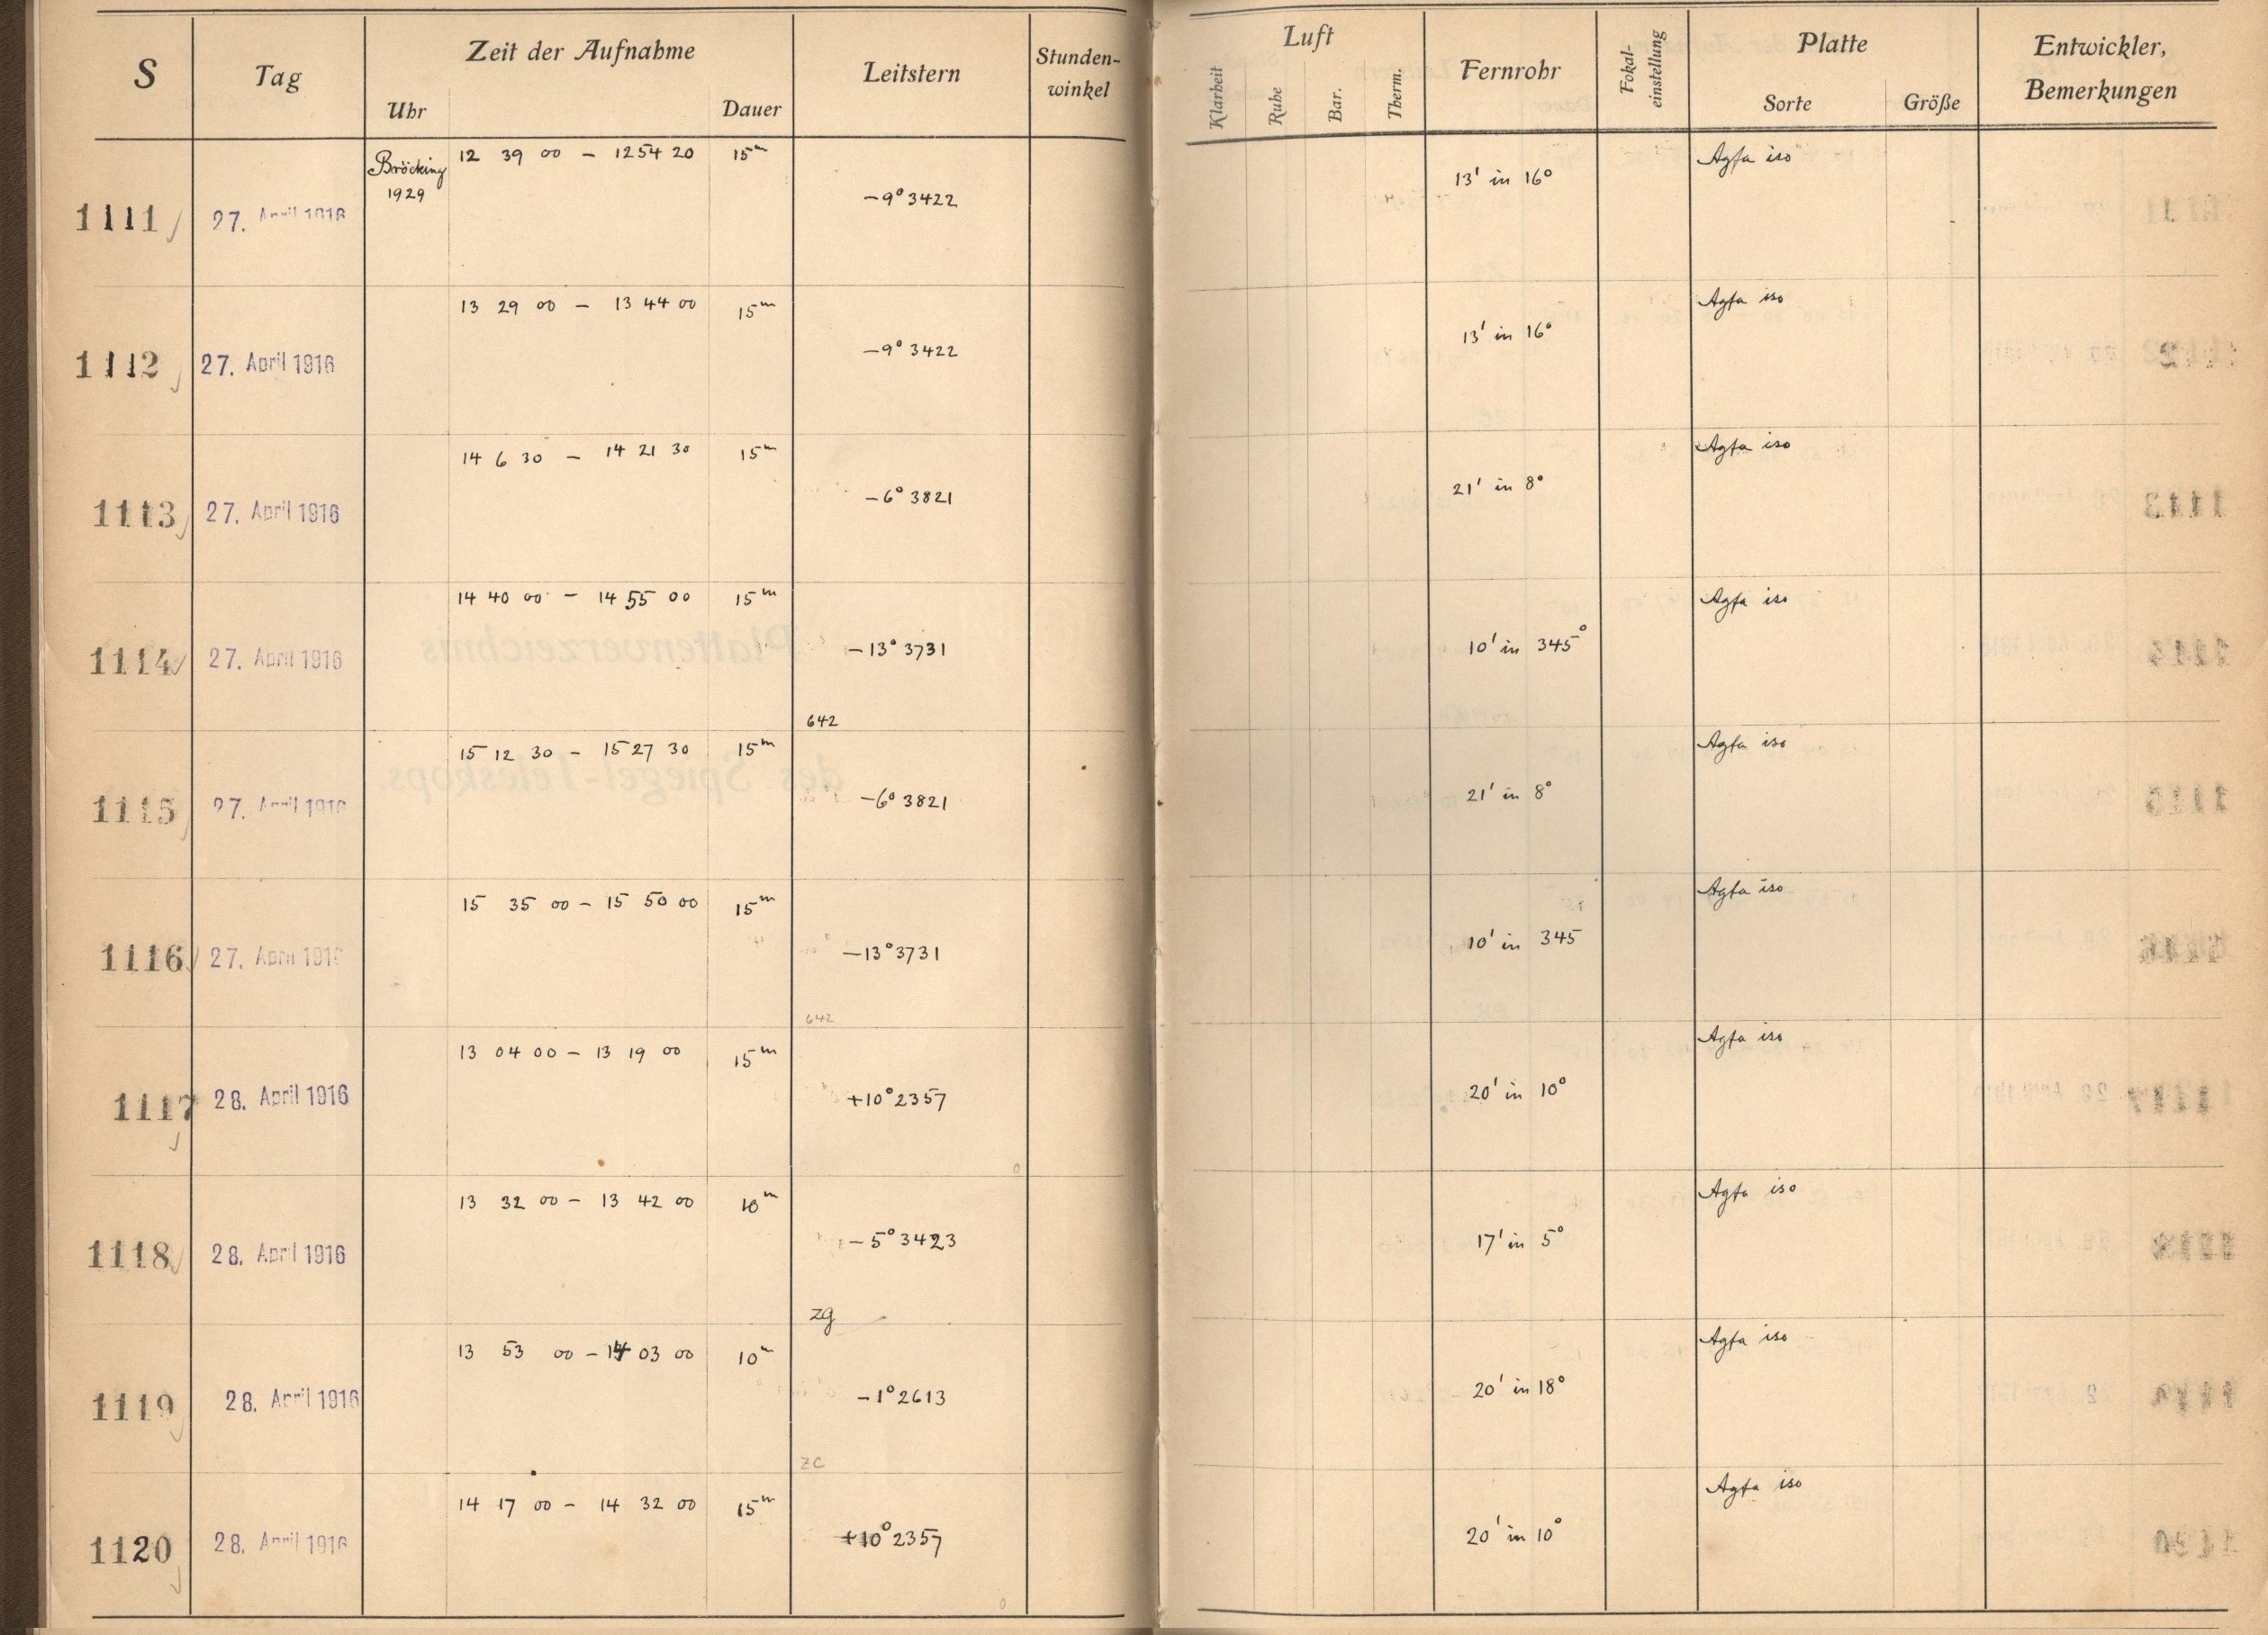 S Tag Zeit der Aufnahme Leitstern Stunden-winkel Luft Fernrohr Fokal-einstellung Platte Entwickler, Bemerkungen
Uhr Dauer Klarheit Ruhe Bar. Therm. Sorte Größe
Bröcking 12 39 00 – 12 54 20 15m Agfa iso
1929
1111 27. April 1916 –9° 3422 13' in 16°
13 29 00 – 13 44 00 15m Agfa iso
1112 27. April 1916 –9° 3422 13' in 16°
14 6 30 – 14 21 30 15m Agfa iso
1113 27. April 1916 –6° 3821 21' in 8°
14 40 00 – 14 55 00 15m Agfa iso
1114 27. April 1916 –13° 3731 10' in 345°
642
15 12 30 – 15 27 30 15m Agfa iso
1115 27. April 1916 –6° 3821 21' in 8°
15 35 00 – 15 50 00 15m Agfa iso
1116 27. April 1916 –13° 3731 10' in 345
642
13 04 00 – 13 19 00 15m Agfa iso
1117 28. April 1916 +10° 2357 20' in 10°
0
13 32 00 – 13 42 00 10m Agfa iso
1118 28. April 1916 –5° 3423 17' in 5°
zg
13 53 00 – 14 03 00 10m Agfa iso
1119 28. April 1916 –1° 2613 20' in 18°
zc
14 17 00 – 14 32 00 15m Agfa iso
1120 28. April 1916 +10° 2357 20' in 10°
0